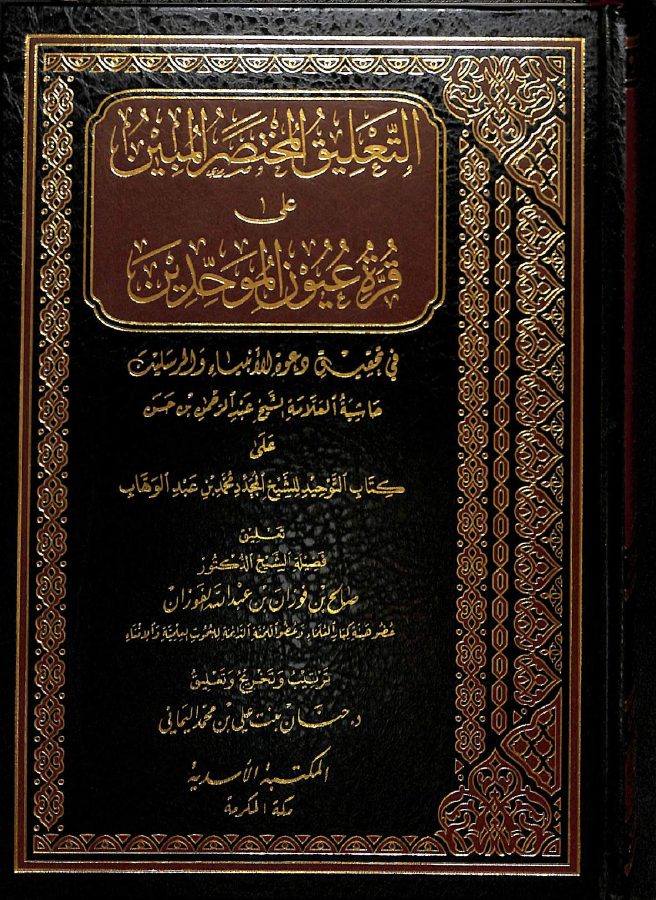 التَّعْلِيقُ المُخْتَصَرُ المُبِينُ
عَلَى
قُرَّةُ عُيُونِ المُوَحِّدِينَ
في تحقيق دعوة الأنبياء والمرسلين
حَاشِيَةُ العَلَّامَةِ الشَّيْخِ عَبْدِ الرَّحْمٰنِ بْنِ حَسَن
عَلَىٰ
كِتَابِ التَّوْحِيدِ لِلشَّيْخِ المُجَدِّدِ مُحَمَّد بْنِ عَبْدِ الوَهَّابِ
تَعْلِيق
فَضِيلَةِ الشَّيْخِ الدُّكْتُور
صَالِح بْن فَوْزَان بْن عَبْد اللَّه الفَوْزَان
عُضْو هَيْئَة كِبَار العُلَمَاء وَعُضْو اللَّجْنَة الدَّائِمَة لِلْبُحُوثِ العِلْمِيَّة وَالإِفْتَاء
تَرْتِيبُ وَتَخْرِيجُ وَتَعْلِيقُ
د. حنان بنت علي بن محمد اليماني
المكتبة الأسدية
مكة المكرمة